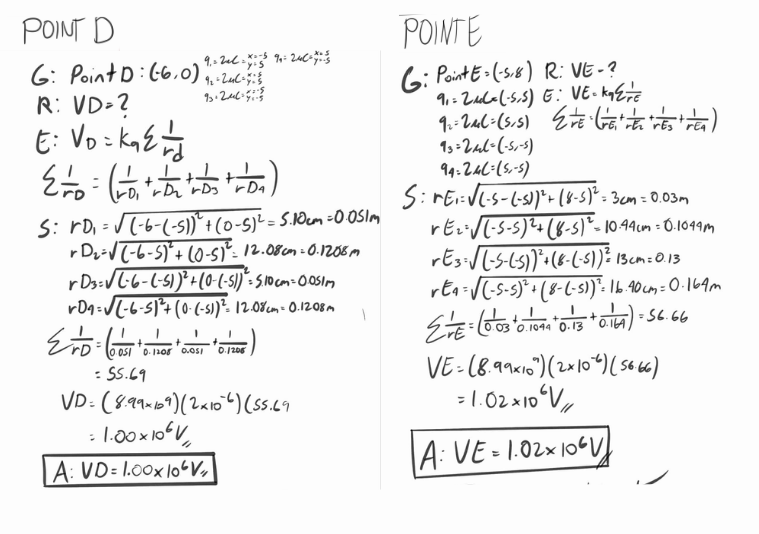 POINT D
G: Point D : (-6,0) q₁=2μC= x=-5 y=5 q₄=2μC= x=5 y=-5
q₂=2μC= x=5 y=5
q₃=2μC= x=-5 y=-5
R: VD = ?
E: VD = kq Σ 1/rd
Σ 1/rD = (1/rD₁ + 1/rD₂ + 1/rD₃ + 1/rD₄)
S: rD₁ = √(-6-(-5))² + (0-5)² = 5.10cm = 0.051m
rD₂ = √(-6-5)² + (0-5)² = 12.08cm = 0.1208m
rD₃ = √(-6-(-5))² + (0-(-5))² = 5.10cm = 0.051m
rD₄ = √(-6-5)² + (0-(-5))² = 12.08cm = 0.1208m
Σ 1/rD = (1/0.051 + 1/0.1208 + 1/0.051 + 1/0.1208)
= 55.69
VD = (8.99x10⁹)(2x10⁻⁶)(55.69
= 1.00x10⁶V
A: VD = 1.00x10⁶V
POINT E
G: Point E = (-5,8) R: VE = ?
q₁=2μC=(-5,5) E: VE = kq Σ 1/rE
q₂=2μC=(5,5) Σ 1/rE = (1/rE₁ + 1/rE₂ + 1/rE₃ + 1/rE₄)
q₃=2μC=(-5,-5)
q₄=2μC=(5,-5)
S: rE₁ = √(-5-(-5))² + (8-5)² = 3cm = 0.03m
rE₂ = √(-5-5)² + (8-5)² = 10.44cm = 0.1044m
rE₃ = √(-5-(-5))² + (8-(-5))² = 13cm = 0.13
rE₄ = √(-5-5)² + (8-(-5))² = 16.40cm = 0.164m
Σ 1/rE = (1/0.03 + 1/0.1044 + 1/0.13 + 1/0.164) = 56.66
VE = (8.99x10⁹)(2x10⁻⁶)(56.66)
= 1.02x10⁶V
A: VE = 1.02x10⁶V